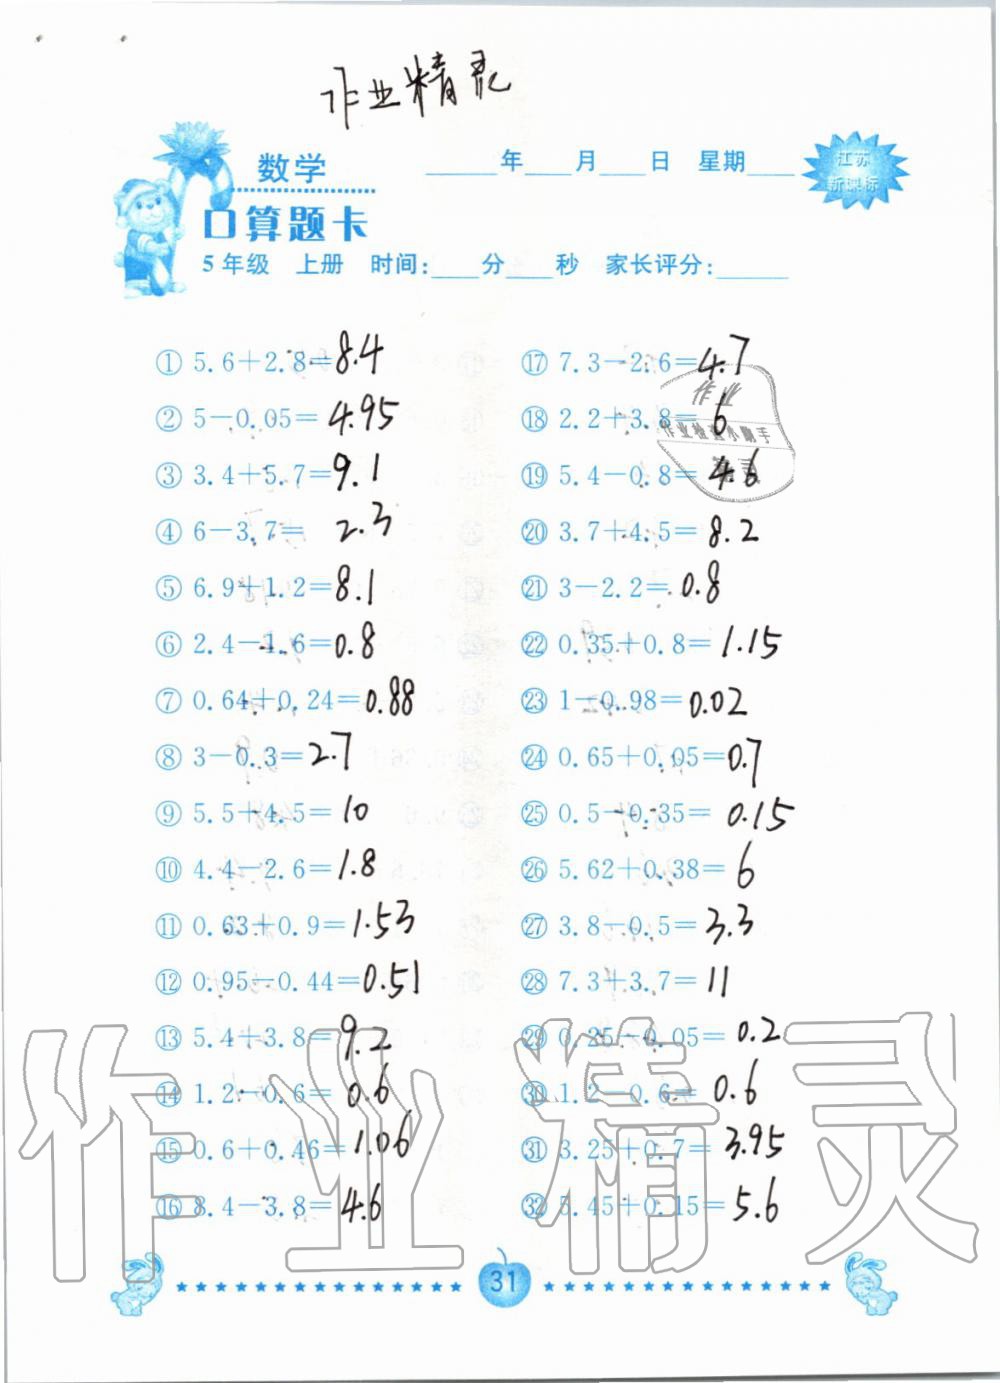 作业精灵
数学
年 月 日 星期
江苏
新课标
口算题卡
5年级 上册 时间: 分 秒 家长评分:
① 5.6+2.8=8.4
② 5-0.05=4.95
③ 3.4+5.7=9.1
④ 6-3.7=2.3
⑤ 6.9+1.2=8.1
⑥ 2.4-1.6=0.8
⑦ 0.64+0.24=0.88
⑧ 3-0.3=2.7
⑨ 5.5+4.5=10
⑩ 4.4-2.6=1.8
⑪ 0.63+0.9=1.53
⑫ 0.95-0.44=0.51
⑬ 5.4+3.8=9.2
⑭ 1.2-0.6=0.6
⑮ 0.6+0.46=1.06
⑯ 8.4-3.8=4.6
⑰ 7.3-2.6=4.7
作业
⑱ 2.2+3.8=6
作业检查小助手
⑲ 5.4-0.8=4.6
⑳ 3.7+4.5=8.2
㉑ 3-2.2=0.8
㉒ 0.35+0.8=1.15
㉓ 1-0.98=0.02
㉔ 0.65+0.05=0.7
㉕ 0.5-0.35=0.15
㉖ 5.62+0.38=6
㉗ 3.8-0.5=3.3
㉘ 7.3+3.7=11
㉙ 0.25-0.05=0.2
㉚ 1.2-0.6=0.6
㉛ 3.25+0.7=3.95
㉜ 5.45+0.15=5.6
作业精灵
31